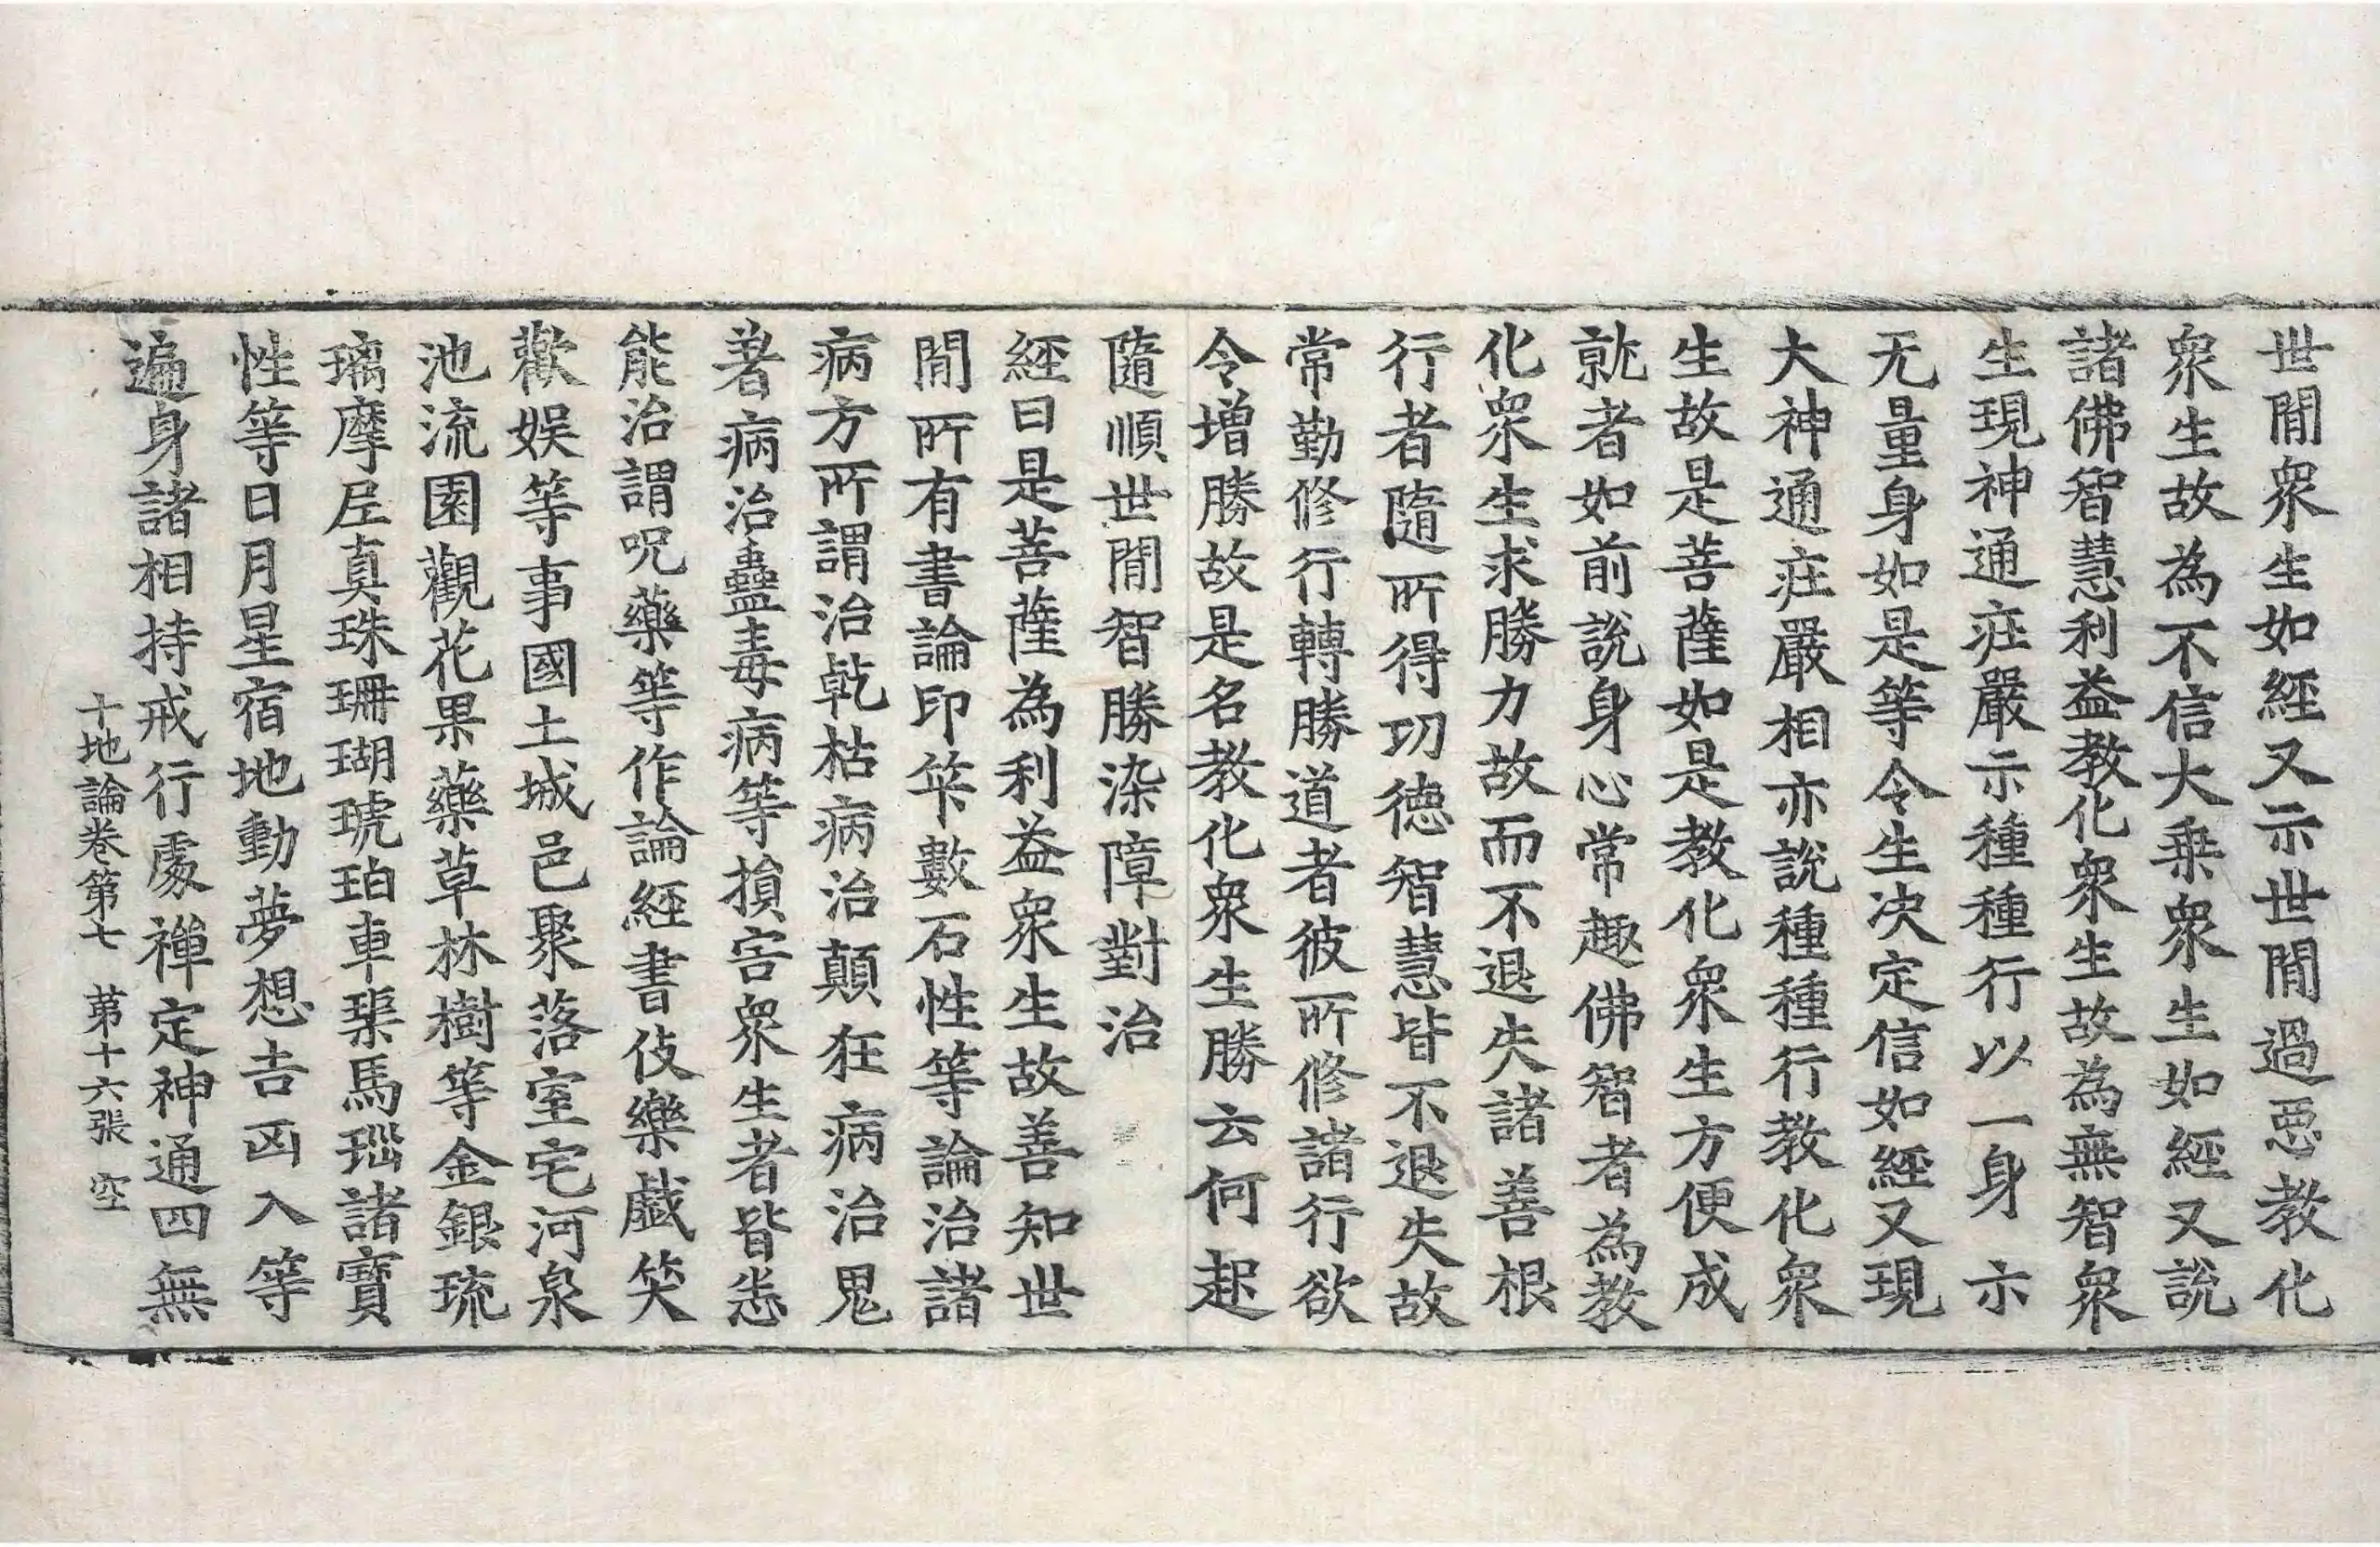 世間衆生如經又示世間過惡教化
衆生故為不信大乗衆生如經又說
諸佛智慧利益教化衆生故為無智衆
生現神通疘嚴示種種行以一身示
无量身如是等令生决定信如經又現
大神通疘嚴相亦說種種行教化衆
生故是菩薩如是教化衆生方便成
就者如前說身心常趣佛智者為教
化衆生求勝力故而不退失諸善根
行者隨所得功徳智慧皆不退失故
常勤修行轉勝道者彼所修諸行欲
令增勝故是名教化衆生勝云何起
隨順世間智勝染障對治
經曰是菩薩為利益衆生故善知世
間所有書論印筭數石性等論治諸
病方所謂治乾枯病治顛狂病治鬼
著病治蠱毒病等損害衆生者皆悉
能治謂呪藥等作論經書伎樂戲笑
歡娛等事國土城邑聚落室宅河泉
池流園觀花果藥草林樹等金銀琉
璃摩𡰱真珠珊瑚琥珀車𤦲馬瑙諸寶
性等日月星宿地動夢想吉凶入等
遍身諸相持戒行處禪定神通四無
十地論卷第七 第十六張 空